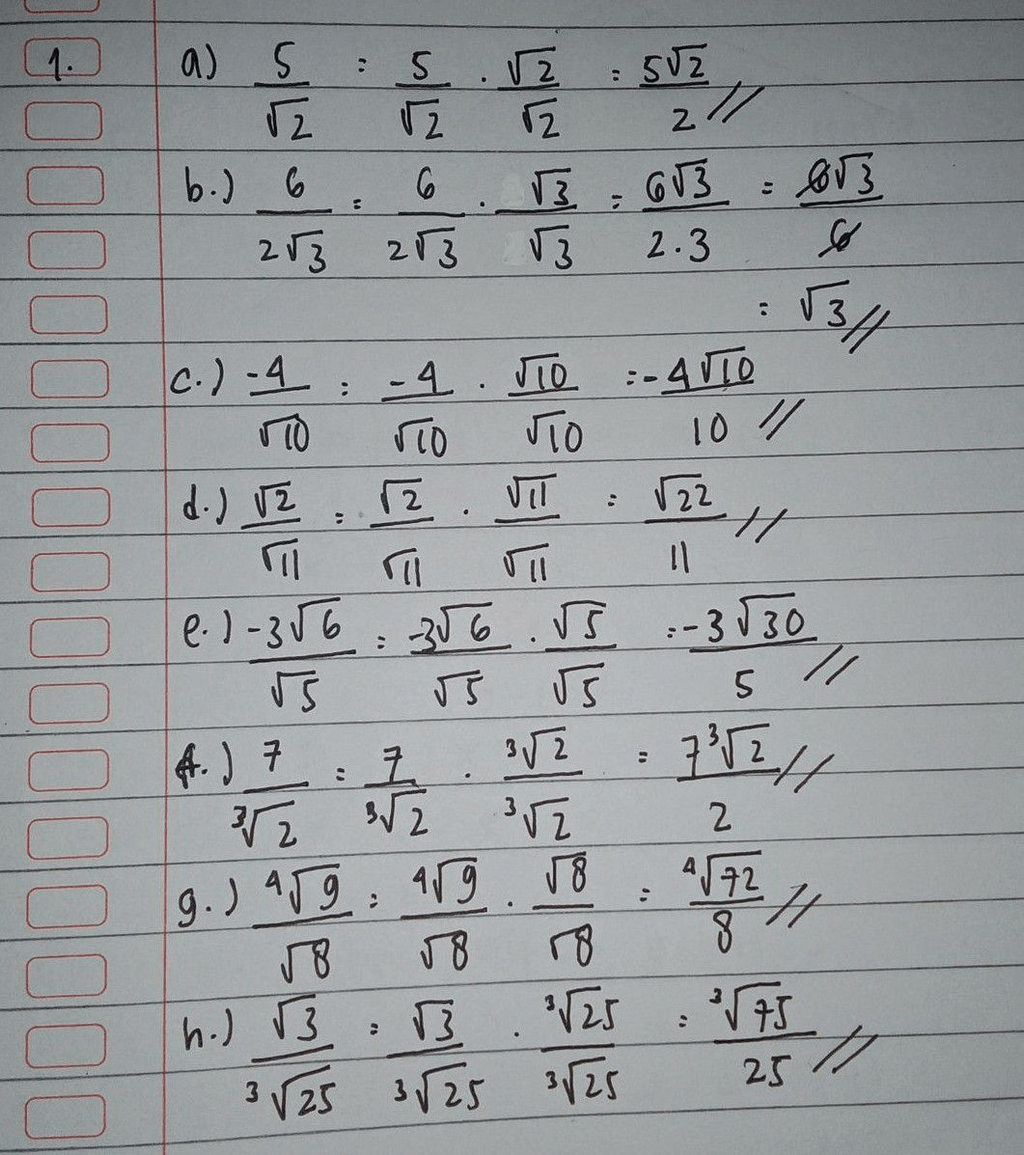 1. a) 5/√2 = 5/√2 . √2/√2 = 5√2/2 //
b.) 6/2√3 = 6/2√3 . √3/√3 = 6√3/2.3 = 6√3/6
= √3 //
c.) -4/√10 = -4/√10 . √10/√10 = -4√10/10 //
d.) √2/√11 = √2/√11 . √11/√11 = √22/11 //
e.) -3√6/√5 = -3√6/√5 . √5/√5 = -3√30/5 //
f.) 7/³√2 = 7/³√2 . ³√2/³√2 = 7³√2/2 //
g.) ⁴√9/√8 = ⁴√9/√8 . √8/√8 = ⁴√72/8 //
h.) √3/³√25 = √3/³√25 . ³√25/³√25 = ³√75/25 //